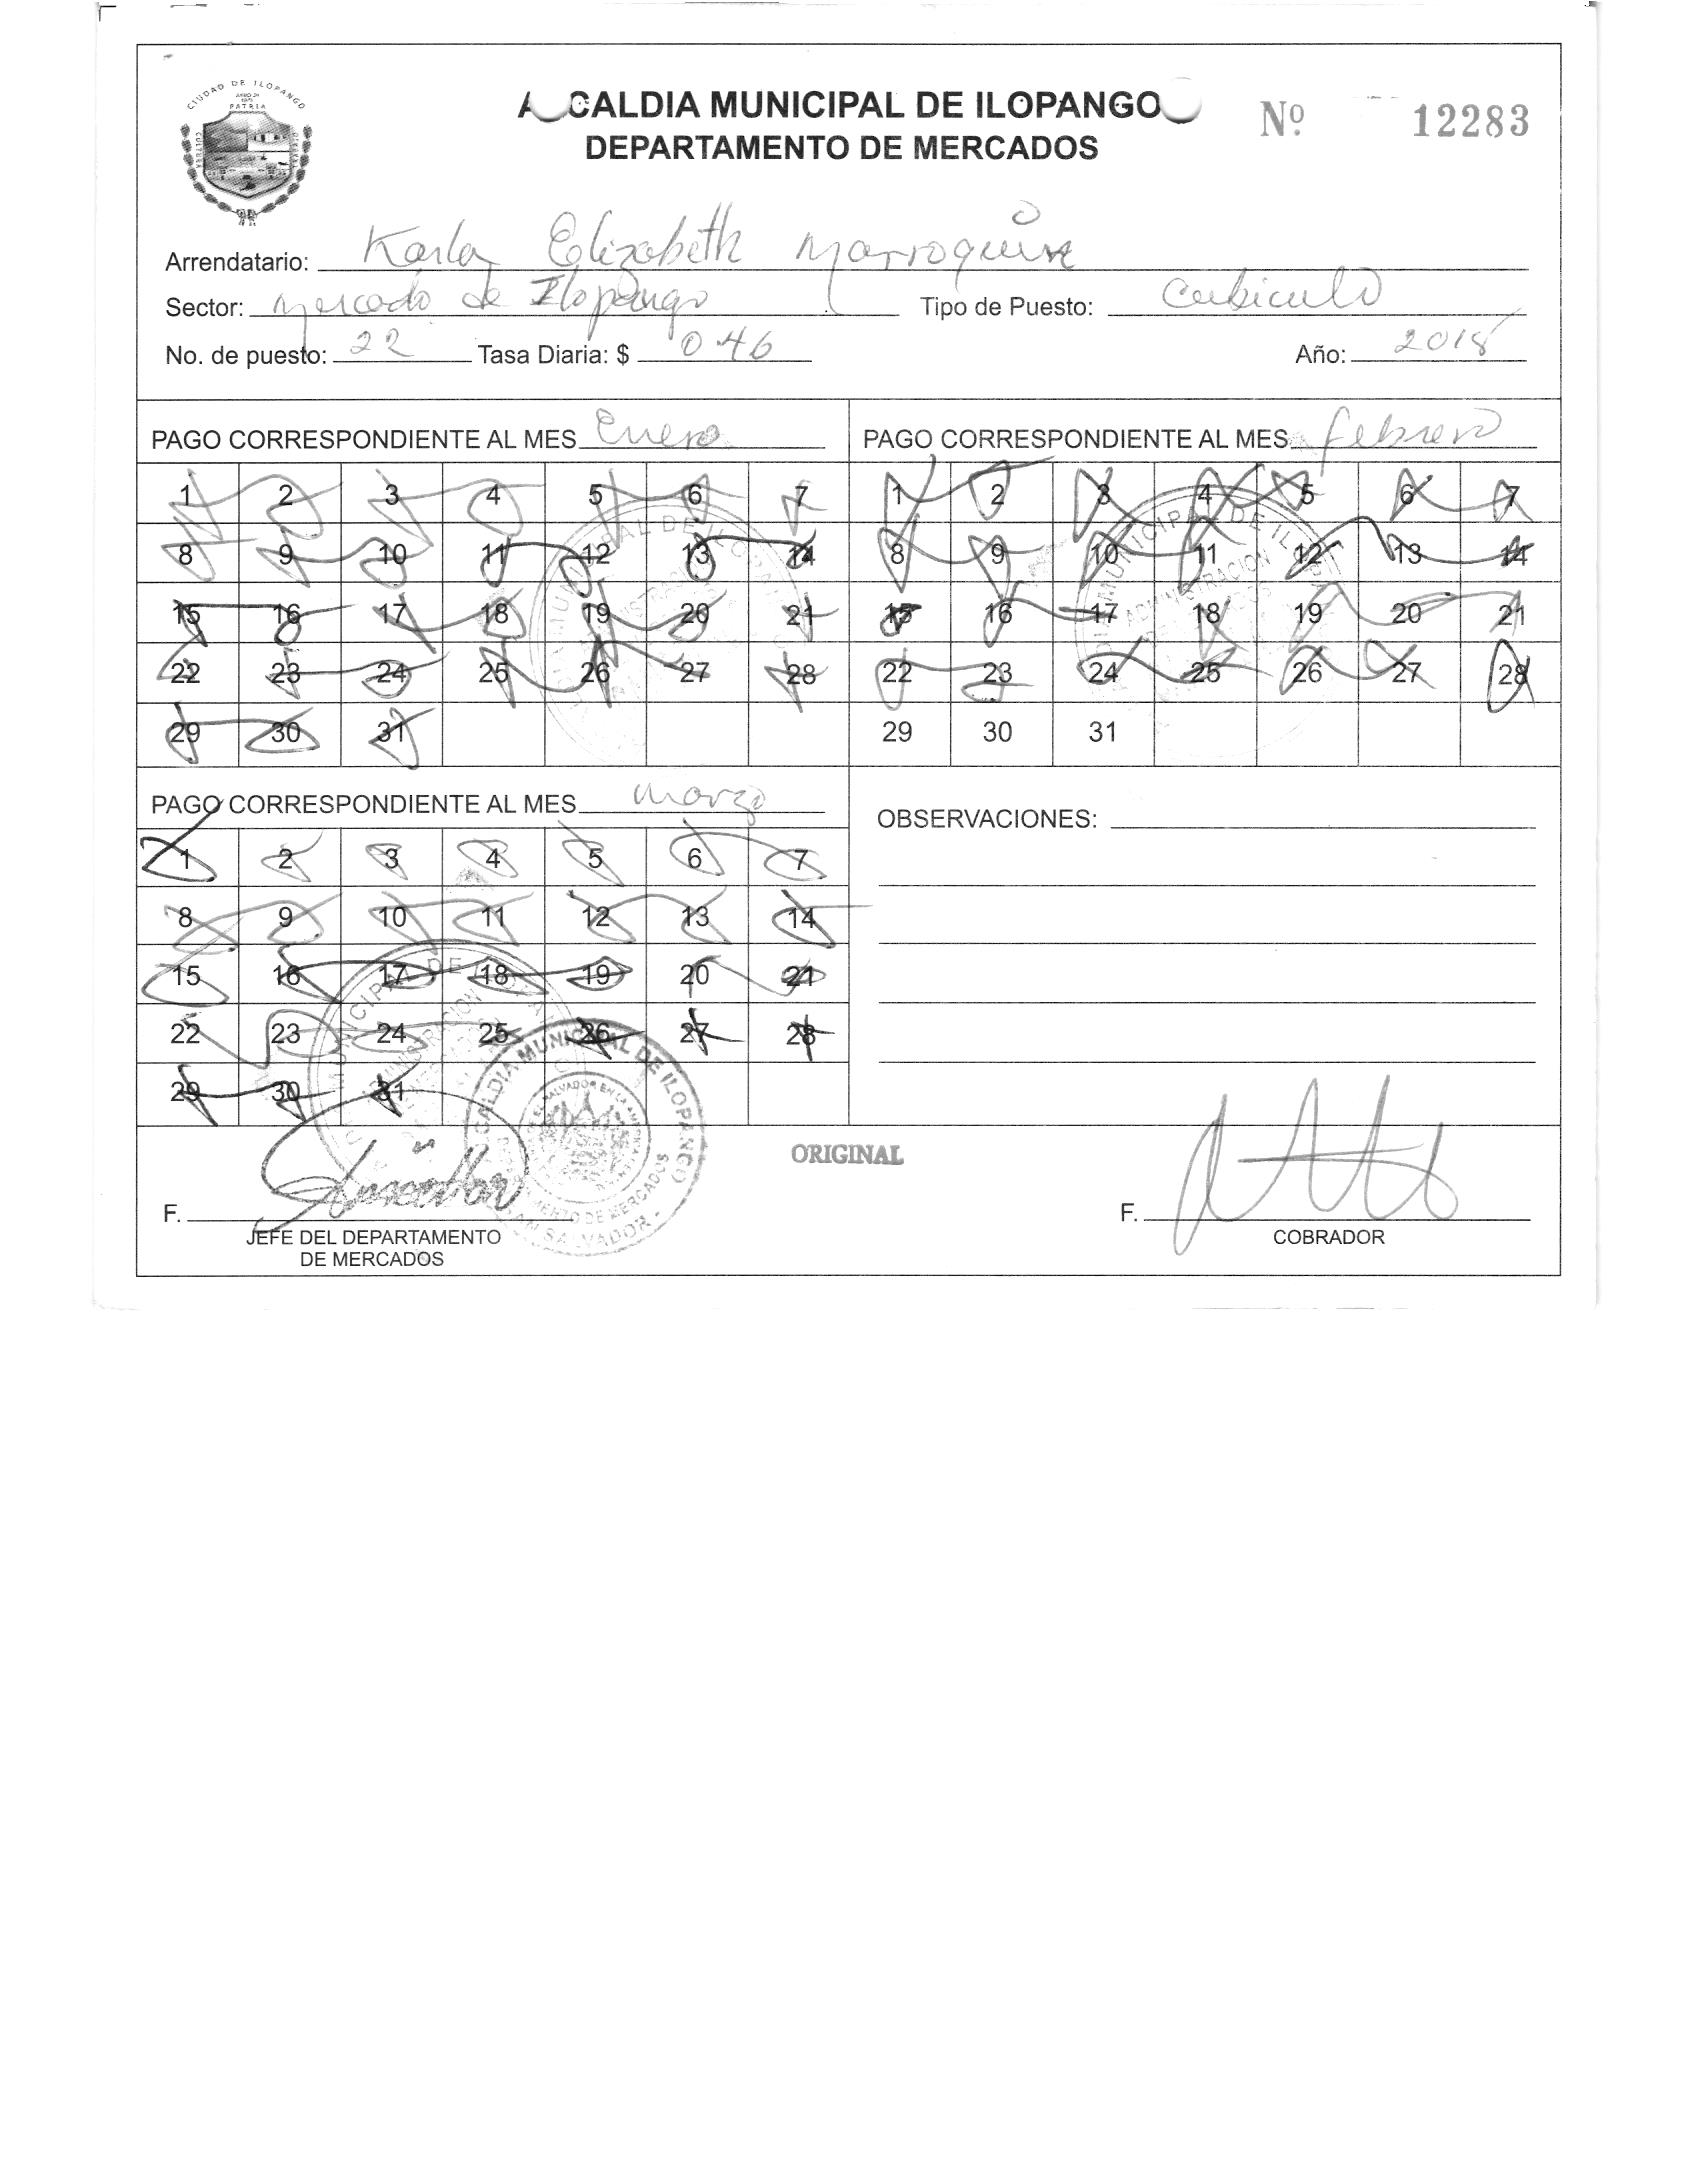 CIUDAD DE ILOPANGO
PATRIA
CULTURA
ALCALDIA MUNICIPAL DE ILOPANGO
DEPARTAMENTO DE MERCADOS
Nº 12283
Arrendatario: Karla Elizabeth Marroquin
Sector: Mercado de Ilopango Tipo de Puesto: Cubiculo
No. de puesto: 22 Tasa Diaria: $ 0.46 Año: 2018
PAGO CORRESPONDIENTE AL MES Enero
1 2 3 4 5 6 7
8 9 10 11 12 13 14
15 16 17 18 19 20 21
22 23 24 25 26 27 28
29 30 31
PAGO CORRESPONDIENTE AL MES febrero
1 2 3 4 5 6 7
8 9 10 11 12 13 14
15 16 17 18 19 20 21
22 23 24 25 26 27 28
29 30 31
PAGO CORRESPONDIENTE AL MES Marzo
1 2 3 4 5 6 7
8 9 10 11 12 13 14
15 16 17 18 19 20 21
22 23 24 25 26 27 28
29 30 31
OBSERVACIONES:
ALCALDIA MUNICIPAL DE ILOPANGO
SAN SALVADOR
ORIGINAL
F.
JEFE DEL DEPARTAMENTO
DE MERCADOS
F.
COBRADOR